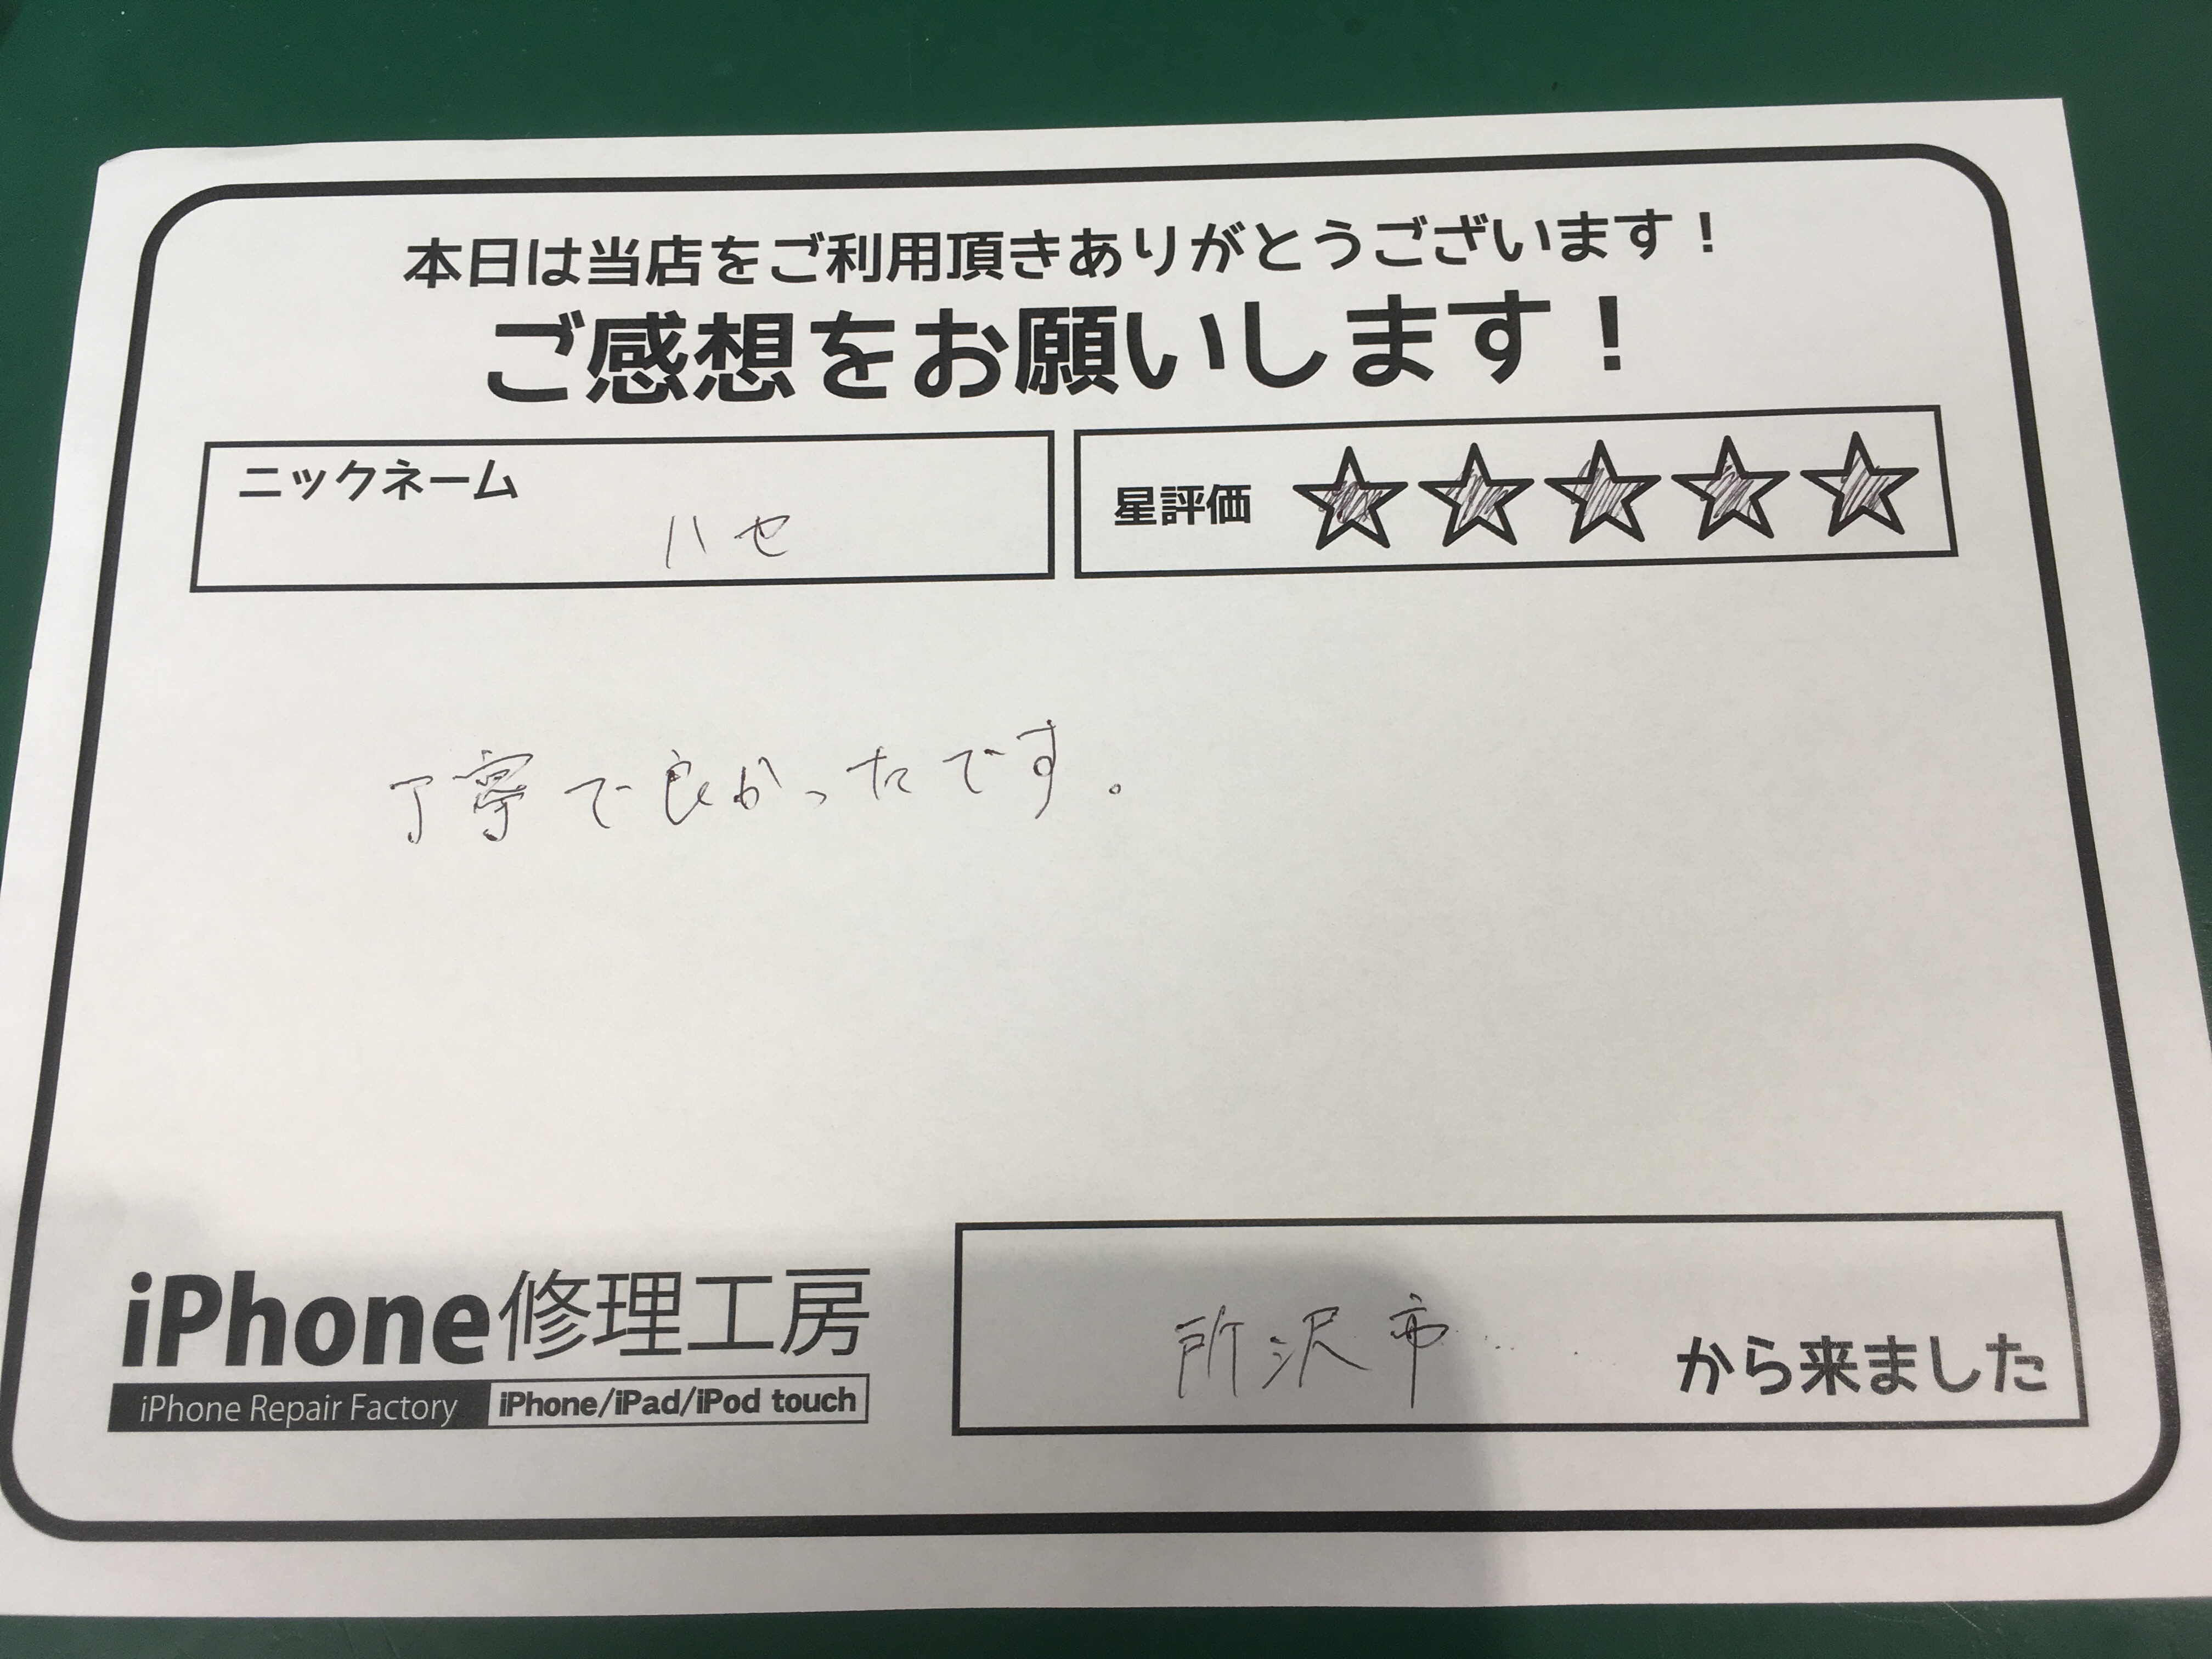 本日は当店をご利用頂きありがとうございます！
ご感想をお願いします！
ニックネーム
ハセ
星評価 ★★★★★
丁寧で良かったです。
iPhone修理工房
iPhone Repair Factory iPhone/iPad/iPod touch
所沢市 から来ました